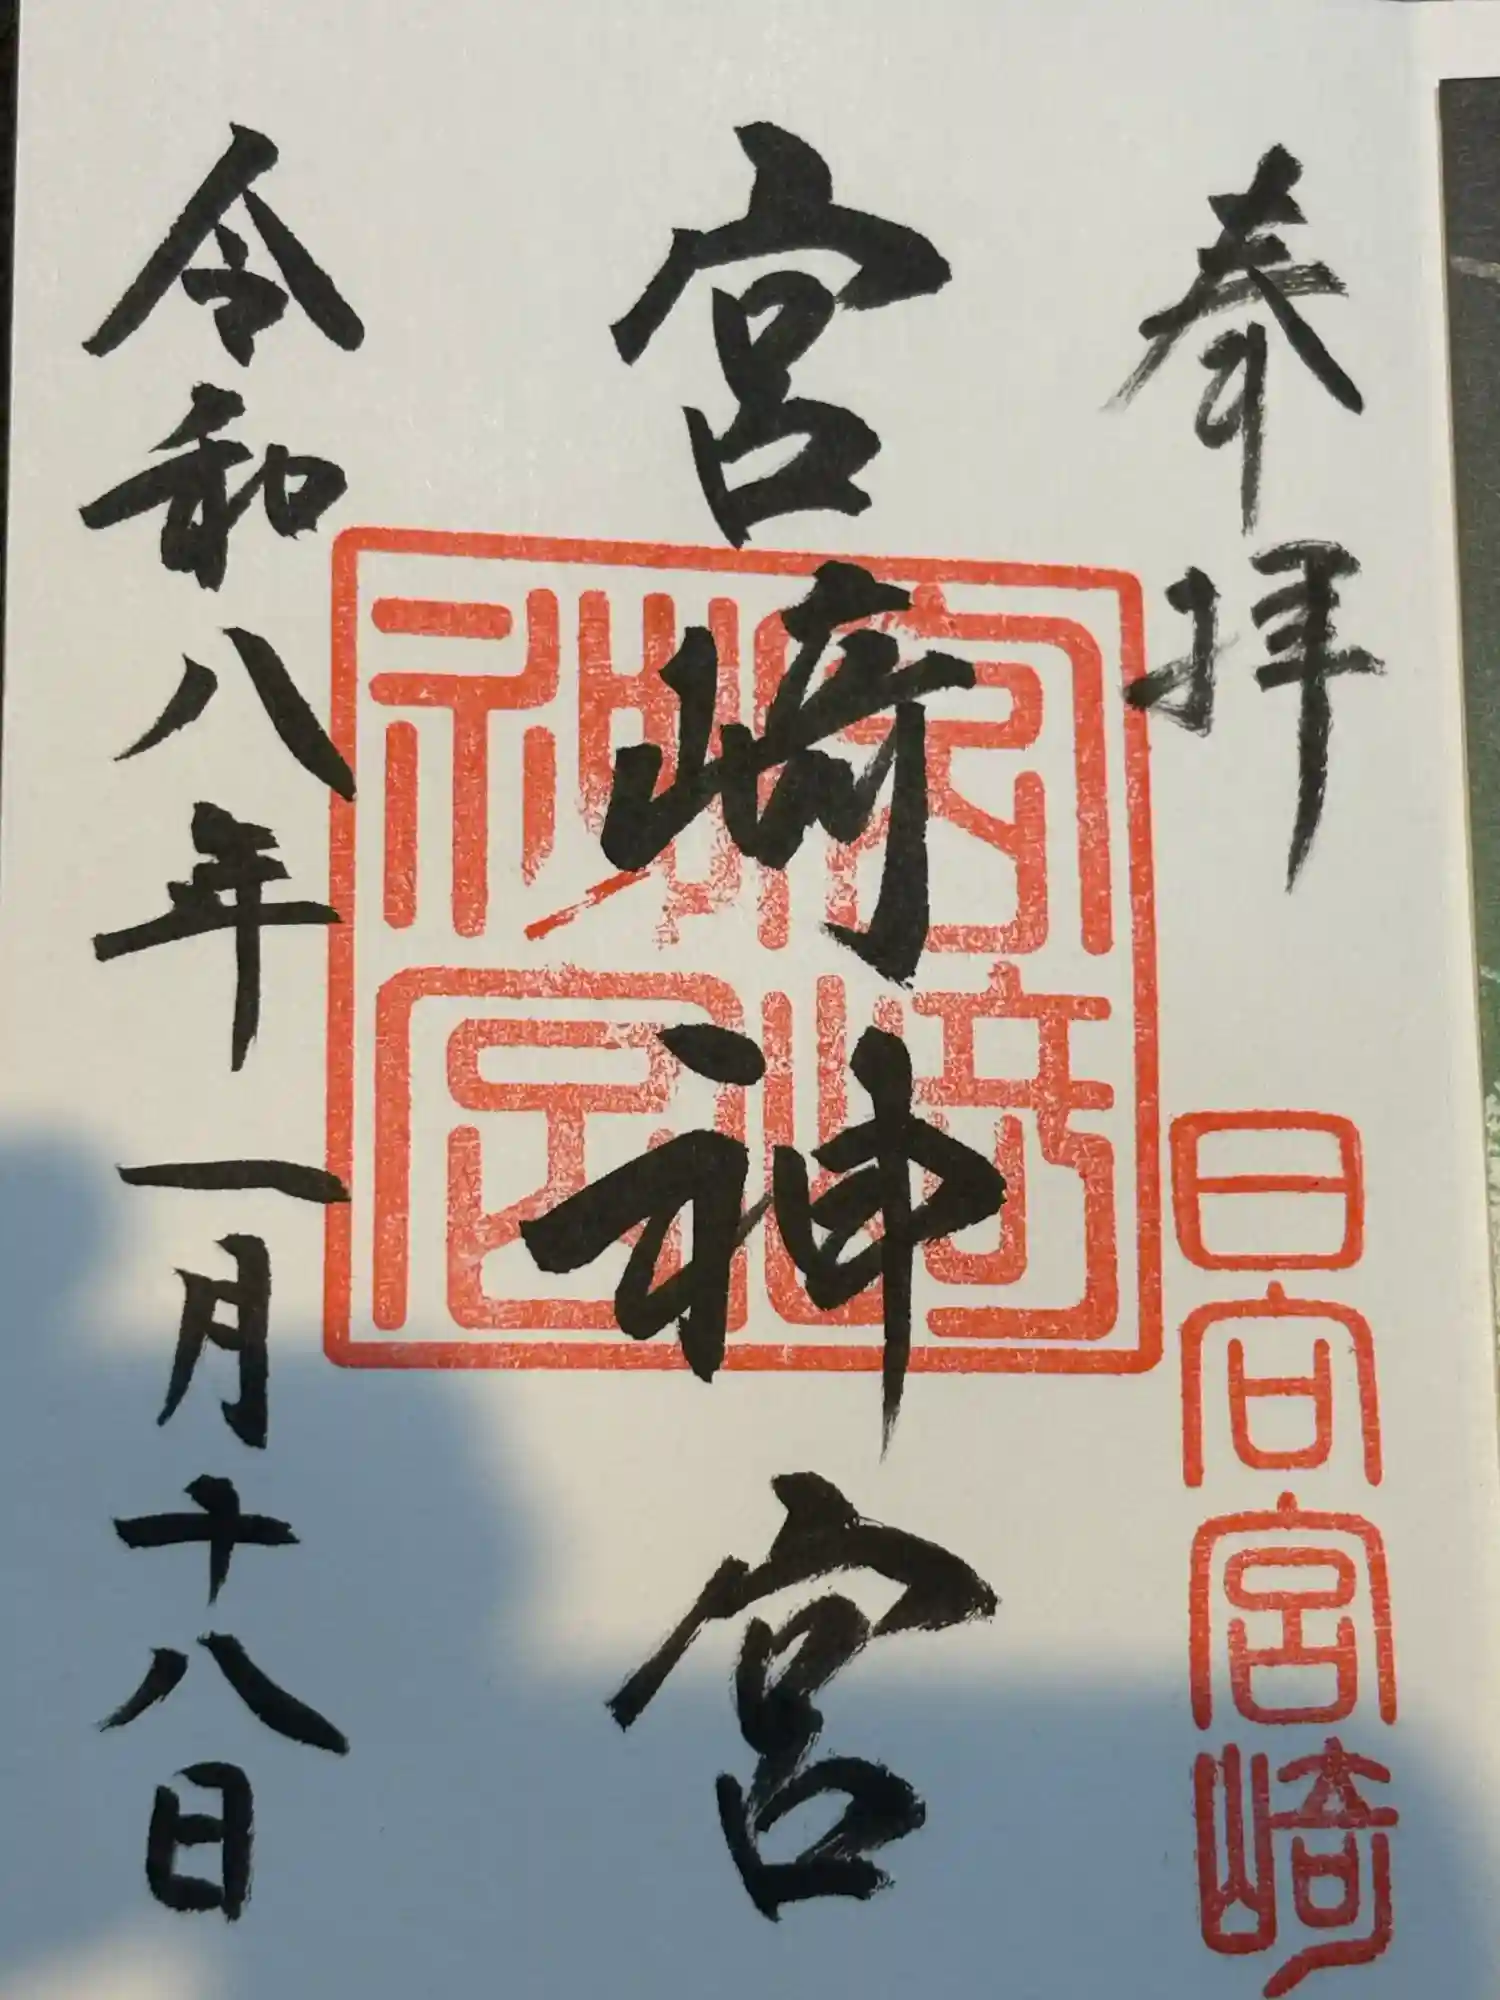 奉拝
日向宮崎
宮崎神宮
宮崎神宮
令和八年一月十八日